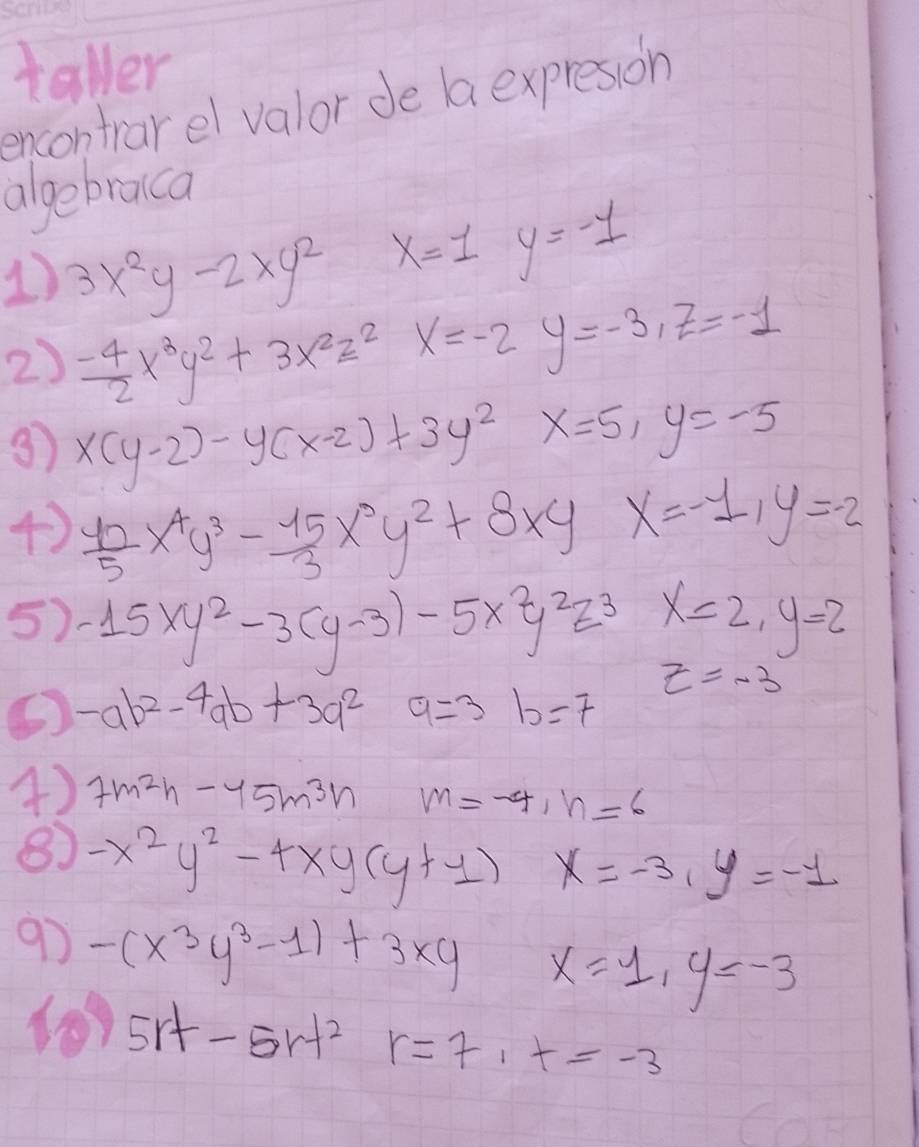 taller
encontrar el valor de la expresión
algebraica
1) 3x²y - 2xy² x=1 y=-1
2) -4/2 x³y² + 3x²z² x=-2 y=-3, z=-1
3) x(y-2) - y(x-2) + 3y² x=5, y=-5
4) 10/5 x⁴y³ - 15/3 x³y² + 8xy x=-1, y=-2
5) -15xy² - 3(y-3) - 5x²y²z³ x=2, y=2
z=-3
6) -ab² - 4ab + 3a² a=3 b=7
7) 7m²n - 45m³n m=-4, n=6
8) -x²y² - 4xy(y+1) x=-3, y=-1
9) -(x³y³-1) + 3xy x=1, y=-3
10) 5rt - 5rt² r=7, t=-3